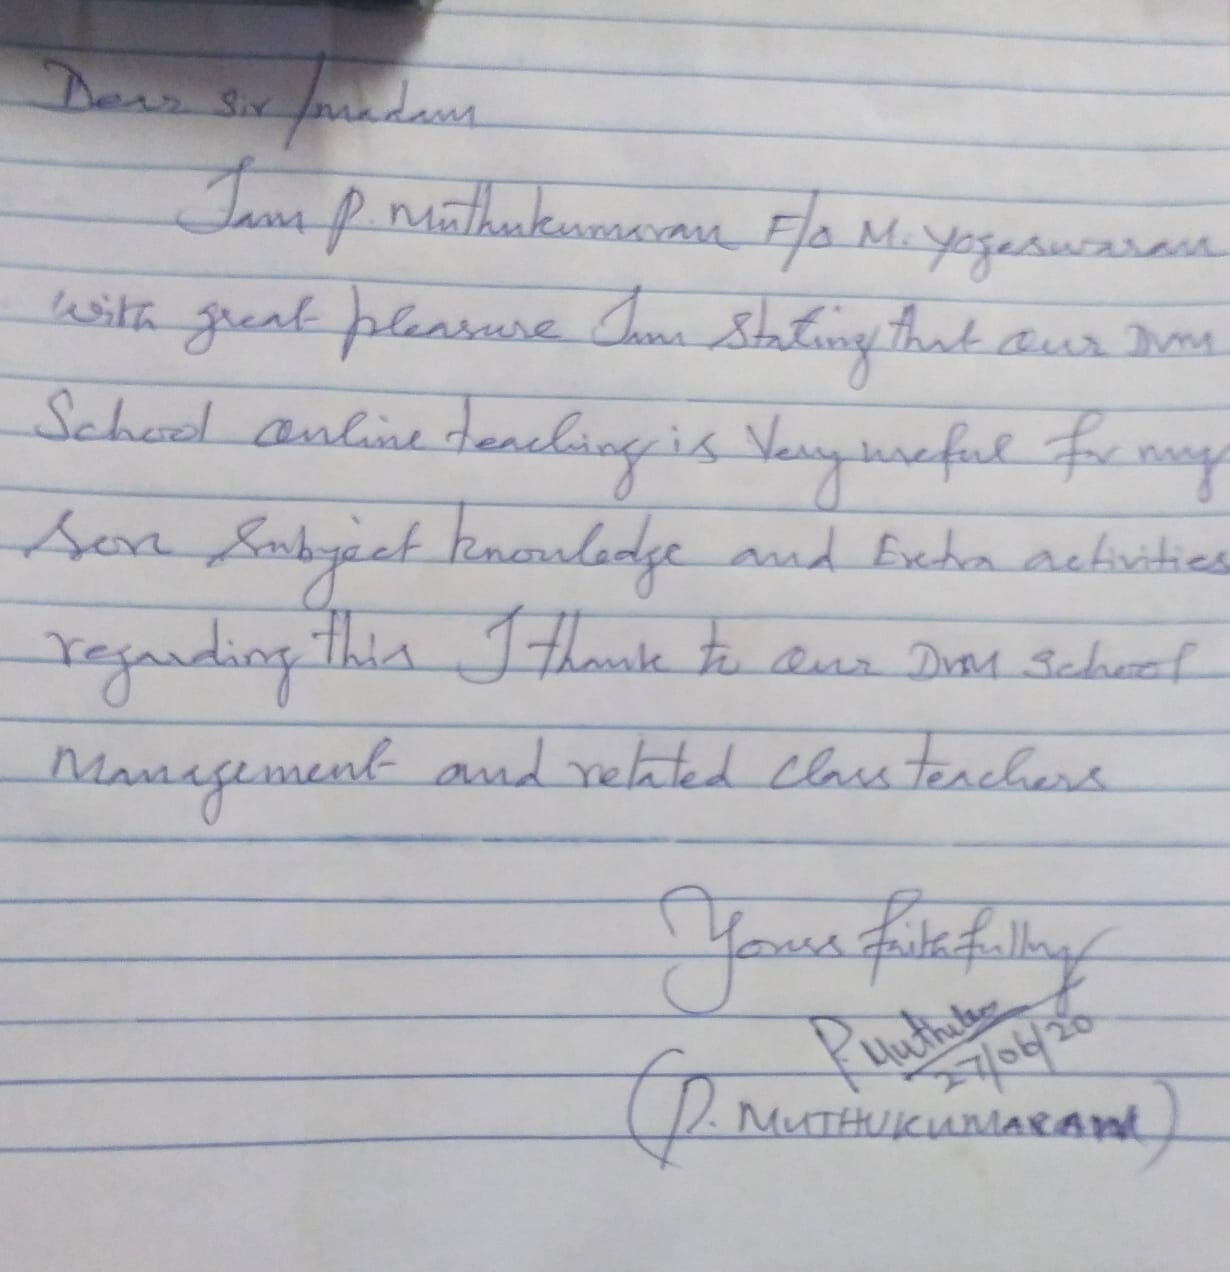 Dear Sir/madam
I am P. Muthukumaran F/o M. Yogeswaran
with great pleasure I am stating that our DVM
School online teaching is Very useful for my
Son Subject knowledge and Extra activities
regarding this I thank to our DVM School
Management and related class teachers
Yours faithfully
P. Muthukm
27/06/20
(P. MUTHUKUMARAN)